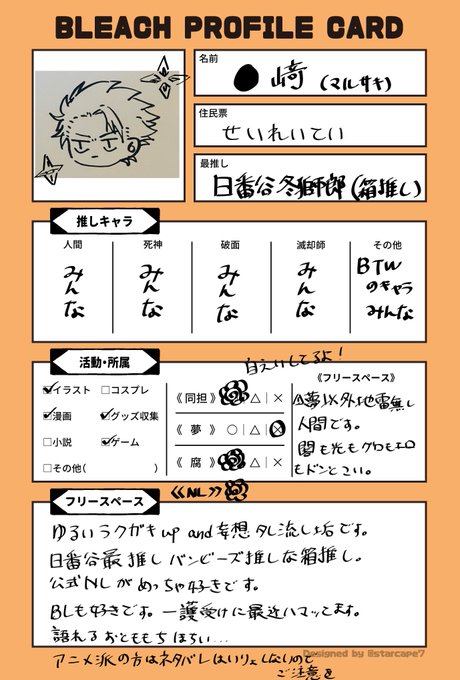 BLEACH PROFILE CARD
名前
●崎 (マルサキ)
住民票
せいれいてい
最推し
日番谷冬獅郎(箱推し)
推しキャラ
人間 死神 破面 滅却師 その他
みんな みんな みんな みんな BTWのキャラみんな
活動・所属
自衛してるよ!
☑イラスト □コスプレ
☑漫画 ☑グッズ収集
□小説 ☑ゲーム
□その他( )
《 同担 》 △ | ×
《 夢 》 ○ | △ | ×
《 腐 》 △ | ×
《NL》
《フリースペース》
夢以外地雷無し
人間です。
闇も光もグロもエロ
もドンとこい。
フリースペース
ゆるいラクガキup and 妄想タレ流し垢です。
日番谷最推しバンビーズ推しな箱推し。
公式NLがめっちゃ好きです。
BLも好きです。一護受けに最近ハマッてます。
語れるおとももちほろい…
Designed by @starcape7
アニメ派の方はネタバレはいりょしないので
ご注意を